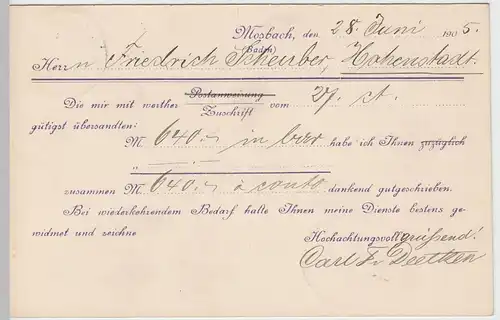 Mosbach, den 28. Juni 1905.
(Baden)
Herrn Friedrich Scheuber, Hohenstadt.
Die mir mit werther Postanweisung vom 27. ct.
Zuschrift
gütigst übersandten:
M 640.- in bar habe ich Ihnen zuzüglich
„ —.—
zusammen M 640.- à conto dankend gutgeschrieben.
Bei wiederkehrendem Bedarf halte Ihnen meine Dienste bestens ge-
widmet und zeichne
Hochachtungsvoll grüssend!
Carl Fr. Deetken